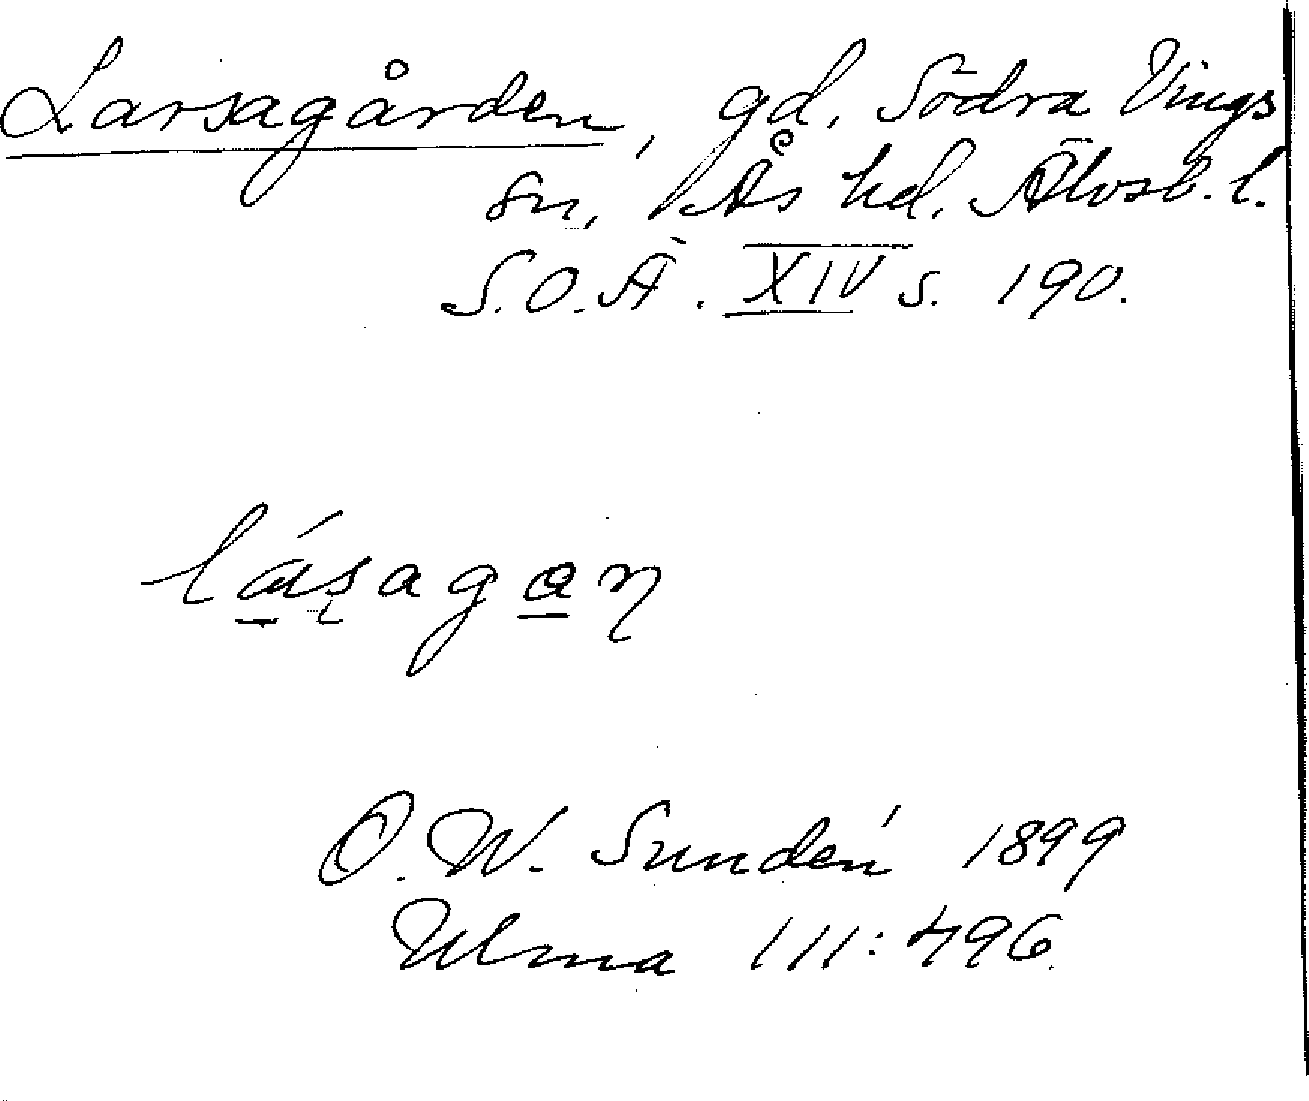 Larsagården, gd, Södra Vings
sn, Ås hd. Älvsb. l.
S.O.Ä. XIV s. 190.
O. W. Sundén 1899
Ulma 111:496.